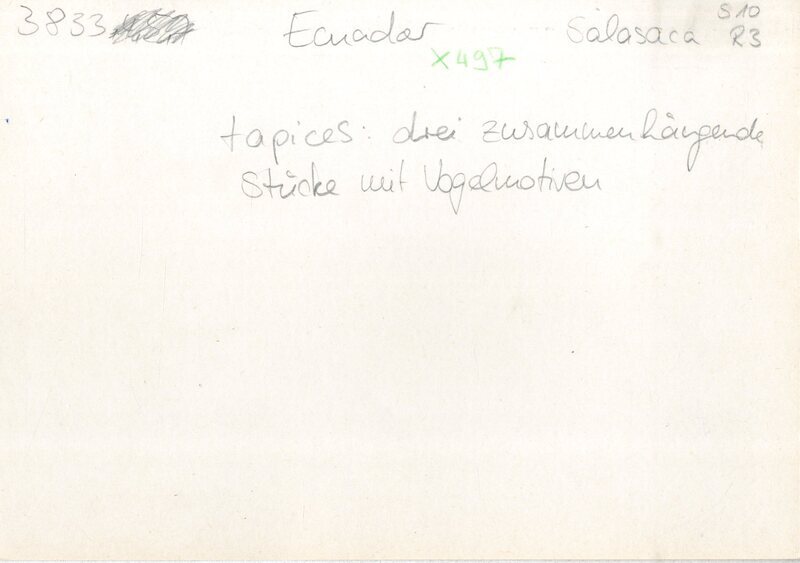 3833 Ecuador Salasaca S10
R3
X497
tapices: drei zusammenhängende
Stücke mit Vogelmotiven